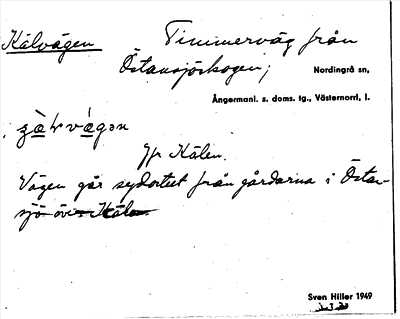 Kälvägen Timmerväg från
Östansjöskogen; Nordingrå sn,
Ångermanl. s. doms. tg., Västernorrl. l.
Jfr Kälen.
Vägen går sydost från gårdarna i Östan-
sjö över Kälen
Sven Hiller 1949